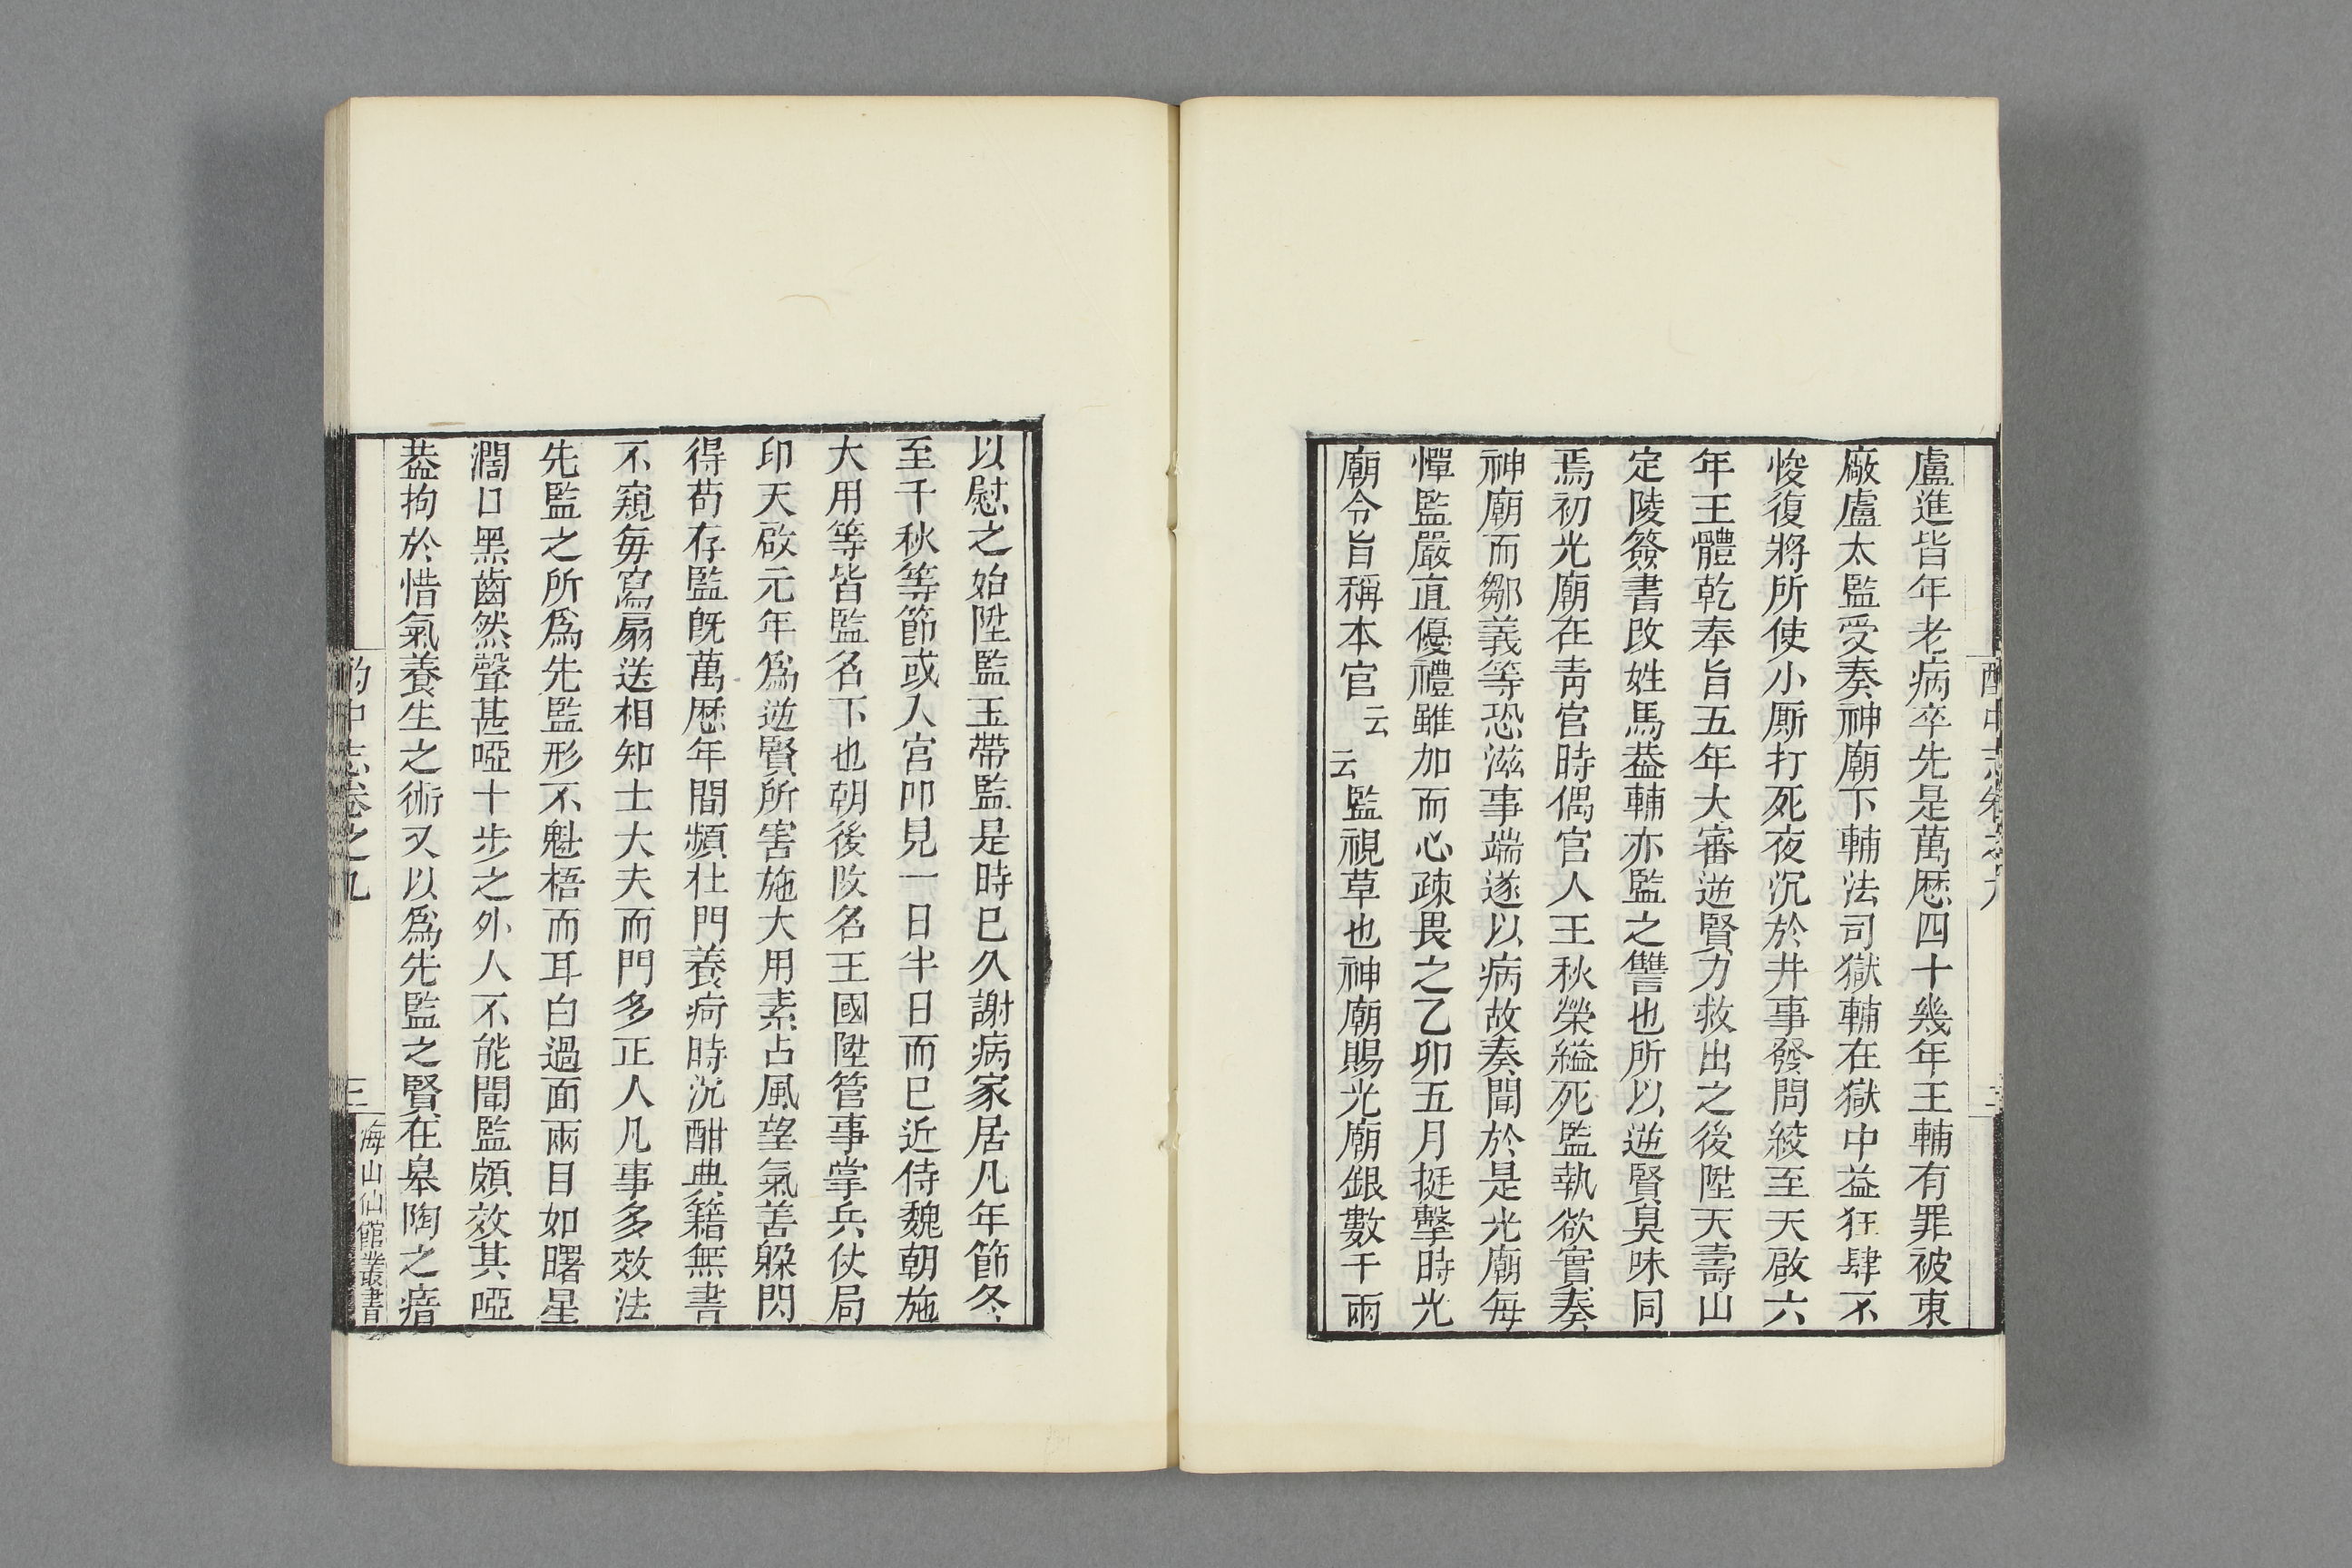 盧進皆年老病卒先是萬厯四十幾年王輔有罪被東
廠盧太監受奏神廟下輔法司獄輔在獄中益狂肆不
悛復將所使小厮打死夜沉於井事發問絞至天啟六
年王體乾奉旨五年大審逆賢力救出之後陞天壽山
定陵簽書改姓馬葢輔亦監之讐也所以逆賢臭味同
焉初光廟在青宮時偶宮人王秋榮縊死監執欲實奏
神廟而鄒義等恐滋事端遂以病故奏聞於是光廟每
憚監嚴直優禮雖加而心疎畏之乙卯五月挺擊時光
廟令旨稱本官云云監視草也神廟賜光廟銀數千兩
以慰之始陞監玉帶監是時已久謝病家居凡年節冬
至千秋等節或入宮叩見一日半日而已近侍魏朝施
大用等皆監名下也朝後改名王國陞管事掌兵仗局
印天啟元年爲逆賢所害施大用素占風望氣善躲閃
得苟存監旣萬厯年間頻杜門養疴時沉酣典籍無書
不窺每寫扇送相知士大夫而門多正人凡事多效法
先監之所爲先監形不魁梧而耳白過面兩目如曙星
濶口黑齒然聲甚啞十步之外人不能聞監頗效其啞
葢拘於惜氣養生之術又以爲先監之賢在臯陶之瘖
酌中志卷之九
三
海山仙館叢書